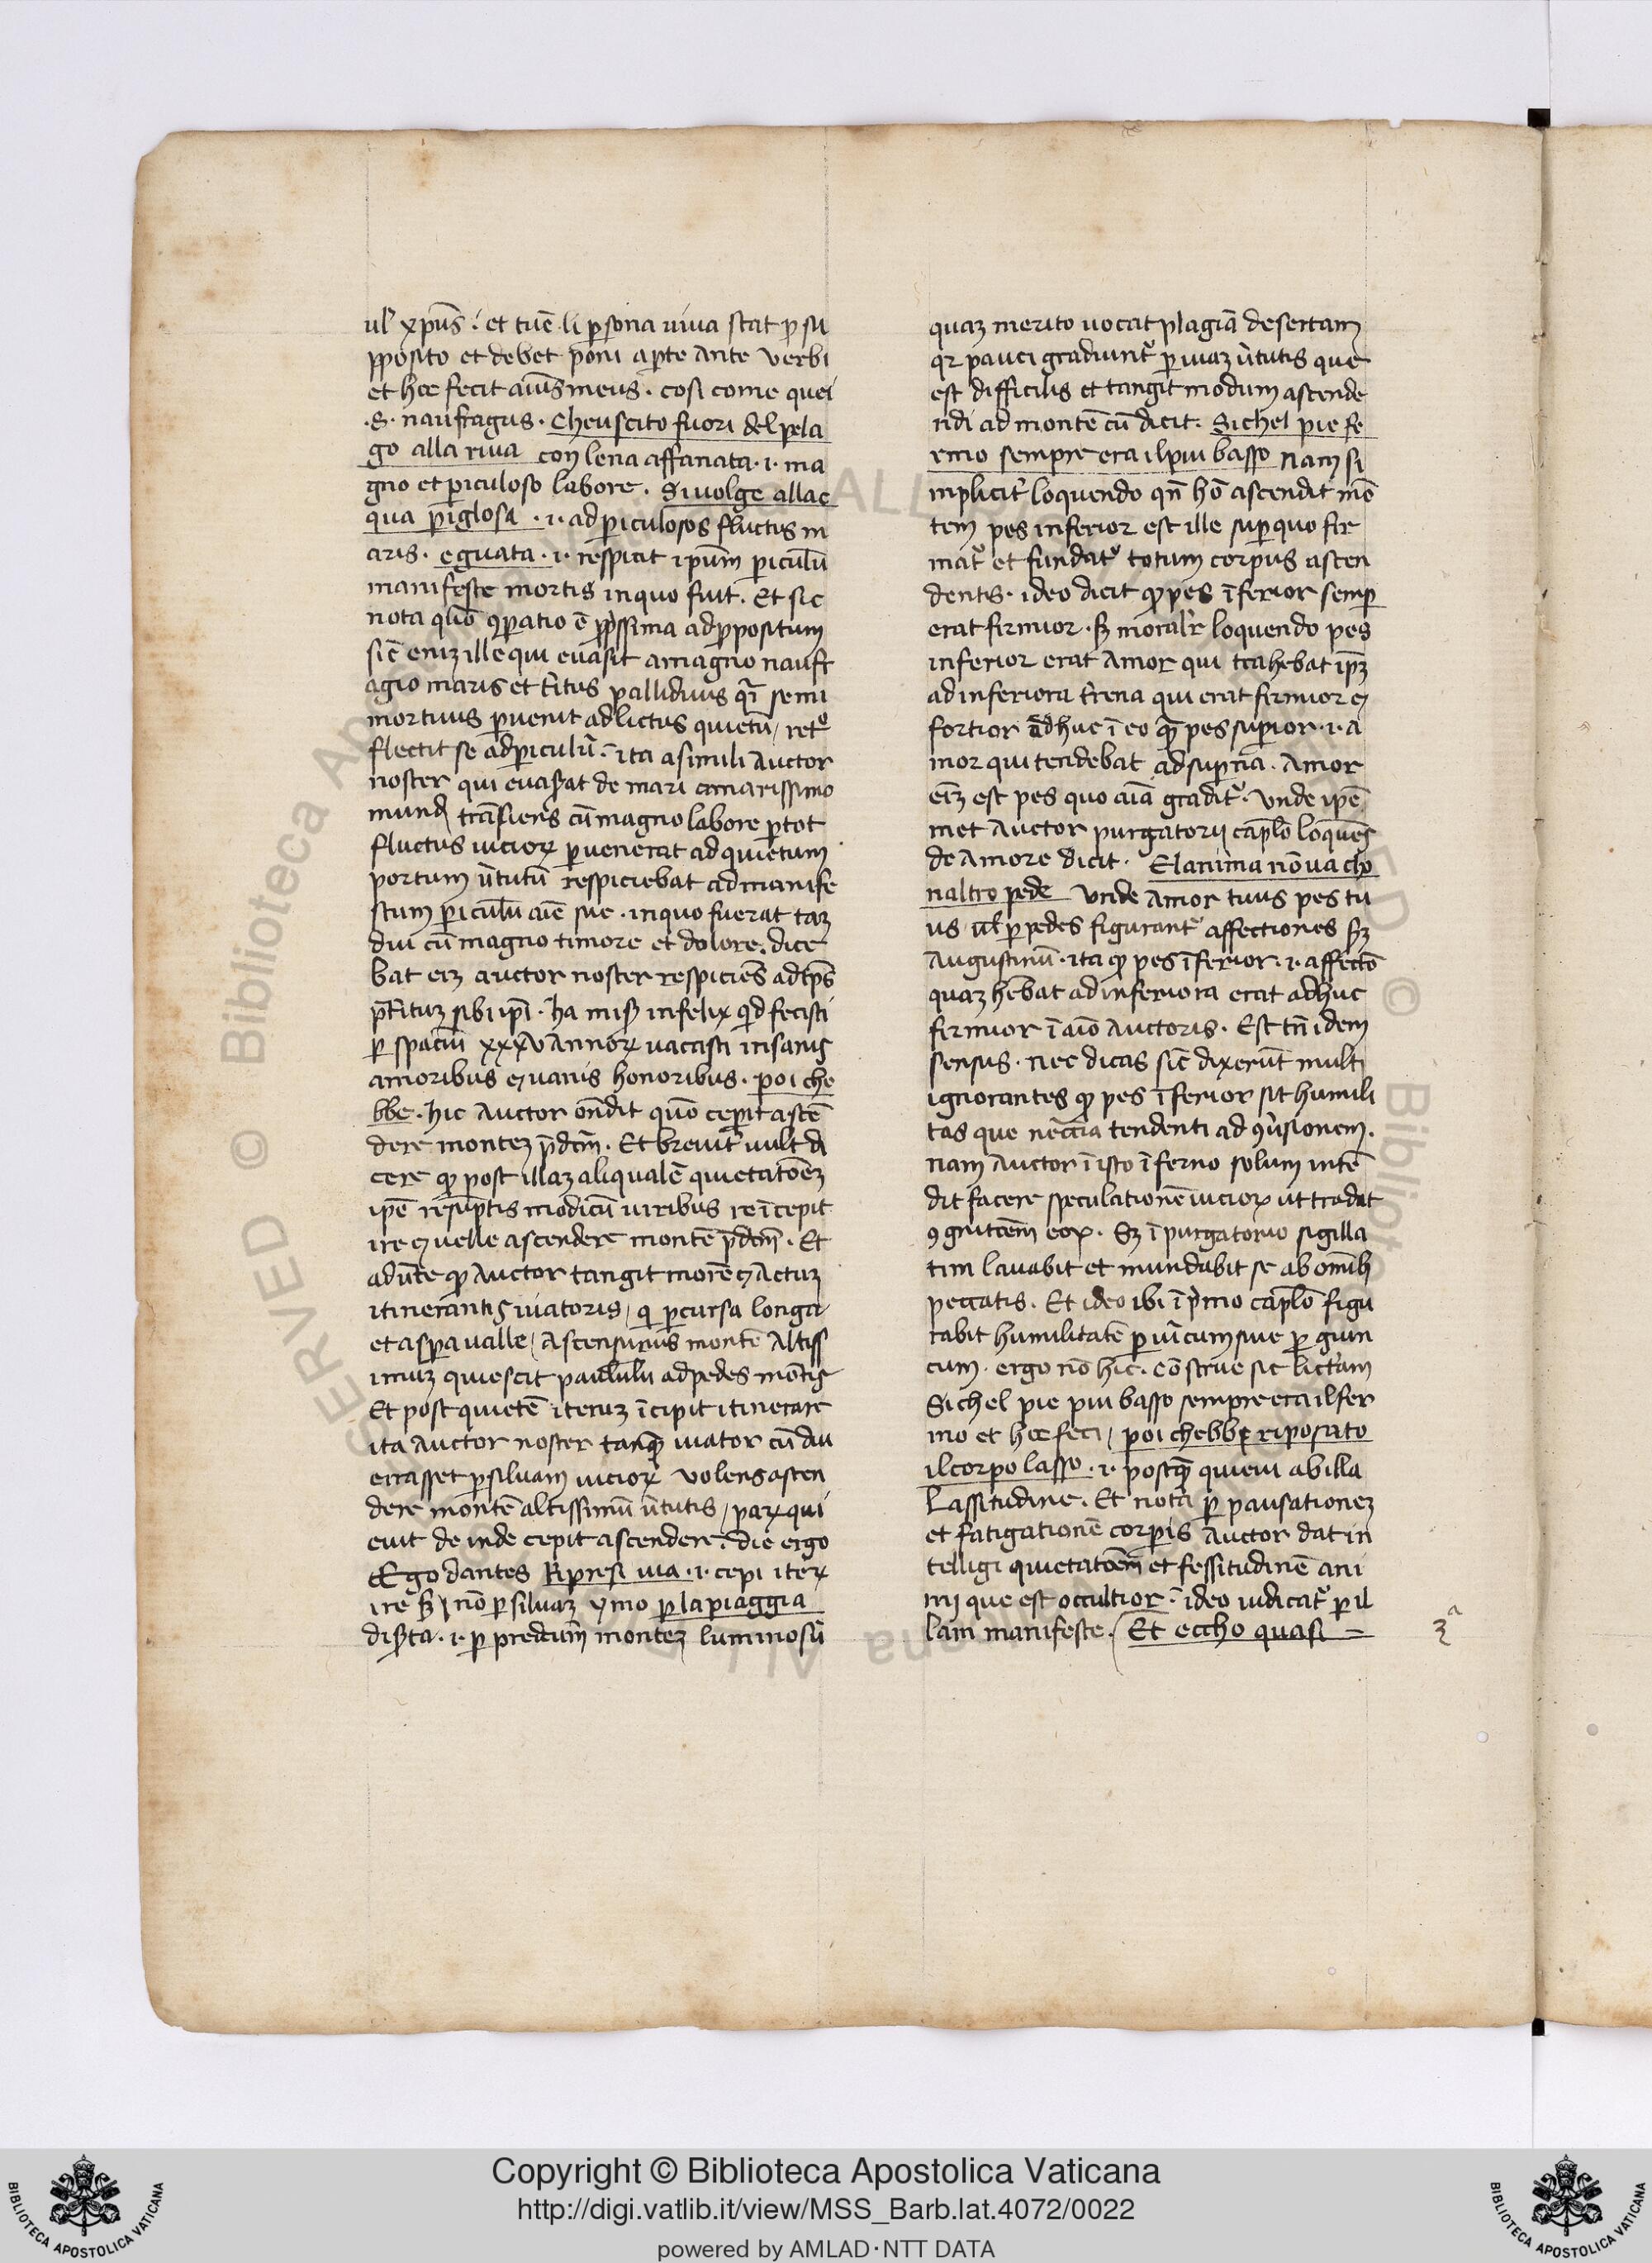 ul' xp̄us: et tūc li persona uiua stat p su
pposito et debet poni a parte ante verbi
et hoc fecit auus meus. cosi come quei
.S. naufragus. Cheuscito fuori del pela
go alla riua con lena affanata .i. ma
gno et piculoso labore. Siuolge allac
qua piglosa .i. ad piculosos fluctus m
aris. eguata .i. respicit ip̄um piculū
manifeste mortis in quo fuit. Et sic
nota quō 9paratio ē ppssima ad ppositum
sic̄ enīz ille qui euasit a magno naufr
agio maris et t̄itus pallidus q̄i semi
mortuus puenit ad lictus quietū, reto
flectit se ad piculū: ita a simili Auctor
noster qui euas̄at de mari amarissimo
mundi trāsiens cū magno labore p tot
fluctus uicioꝝ puenerat ad quietum
portum ūtutū respiciebat ad manife
stum piculū aīe sue. in quo fuerat taz
diu cū magno timore et dolore. dice
bat eīz auctor noster respiciēs ad tp̄s
p̄t̄ituz sibi ip̄i. ha miser infelix qd fecisti
p spaciū xxxv Annoꝝ uacasti insanis
amoribus & uanis honoribus. poi che
bbe. hic Auctor on̄dit quō cepit ascē
dere montez p̄dcm̄. Et breuit' uult di
cere ꝙ post illaz aliqualē quietatōez
ipē resūptis modicū uiribus reīcepit
ire & uelle ascendere montē p̄dcm̄. Et
adūte ꝙ Auctor tangit morē & Actuz
itinerantis uiatoris, qi pcursa longa
et aspa ualle, Ascensurus montē Altiss
imuz quiescit paululū ad pedes mōtis
Et post quietē iteruz īcipit itinerare
ita Auctor noster tanq̄ uiator cū diu
errasset p siluam uicioꝝ volens ascen
dere montē altissimū ūtutis, paꝝ qui
euit de inde cepit ascendere. Dic ergo
Ego dantes Ripresi uia .i. cepi iteꝝ
ire sz nō p siluaz ymo p la piaggia
disrta .i. p predcum̄ montez luminosū
quaz merito uocat plagiā desertam
qr pauci gradiunt' p uiaz ūtutis que
est difficilis et tangit modum ascende
ndi ad montē cū dicit. Sichel pie fe
rmo sempre era il piu basso nam si
mplicit' loquendo qn̄ hō ascendit mō
tem pes inferior est ille sup quo fir
mat' et fundat' totum corpus ascen
dentis. ideo dicit ꝙ pes īferior semp
erat firmior. sz moralr̄ loquendo pes
inferior erat Amor qui trahebat ip̄z
ad inferiora t̄rena qui erat firmior &
fortior adhuc ī eo q̄ pes supior .i. a
mor qui tendebat ad sup̄na. Amor
eīz est pes quo aīa gradit'. Unde ipē
met Auctor purgatorij capl̄o loquēs
de Amore dicit. Elanima nō ua cho
naltro pede Unde Amor tuus pes tu
us. ul̄ p pedes figurant' affectiones sz
Augustinū. ita ꝙ pes īferior .i. affectō
quaz hēbat ad inferiora erat adhuc
firmior ī aīo Auctoris. Est tn̄ idem
sensus. nec dicas sic̄ dixerūt multi
ignorantes ꝙ pes īferior sit humili
tas que neccīa tendenti ad 9ūsionem.
nam Auctor ī isto īferno solum intē
dit facere speculationē uicioꝝ ut tradat
9gnitōem eoꝝ. Sz ī purgatorio sigilla
tim lauabit et mundabit se ab om̄ib
peccatis. Et ideo ibi ī p̄mo capl̄o figu
rabit humilitatē p uīcum siue p giun
cum. ergo nō hic. Cōstrue sic lict'am
Sichel pie piu basso sempre era il fer
mo et hoc feci, poi chebber riposato
il corpo lasso .i. postq̄ quieui ab illa
Lassitudine. Et nota p pausationez
et fatigationē corpis Auctor dat in
telligi quietatōem et fessitudinē ani
mi que est occultior. ideo iudicat' p il
lam manifeste. Et eccho quasi
3ᵃ
Copyright © Biblioteca Apostolica Vaticana
http://digi.vatlib.it/view/MSS_Barb.lat.4072/0022
powered by AMLAD·NTT DATA